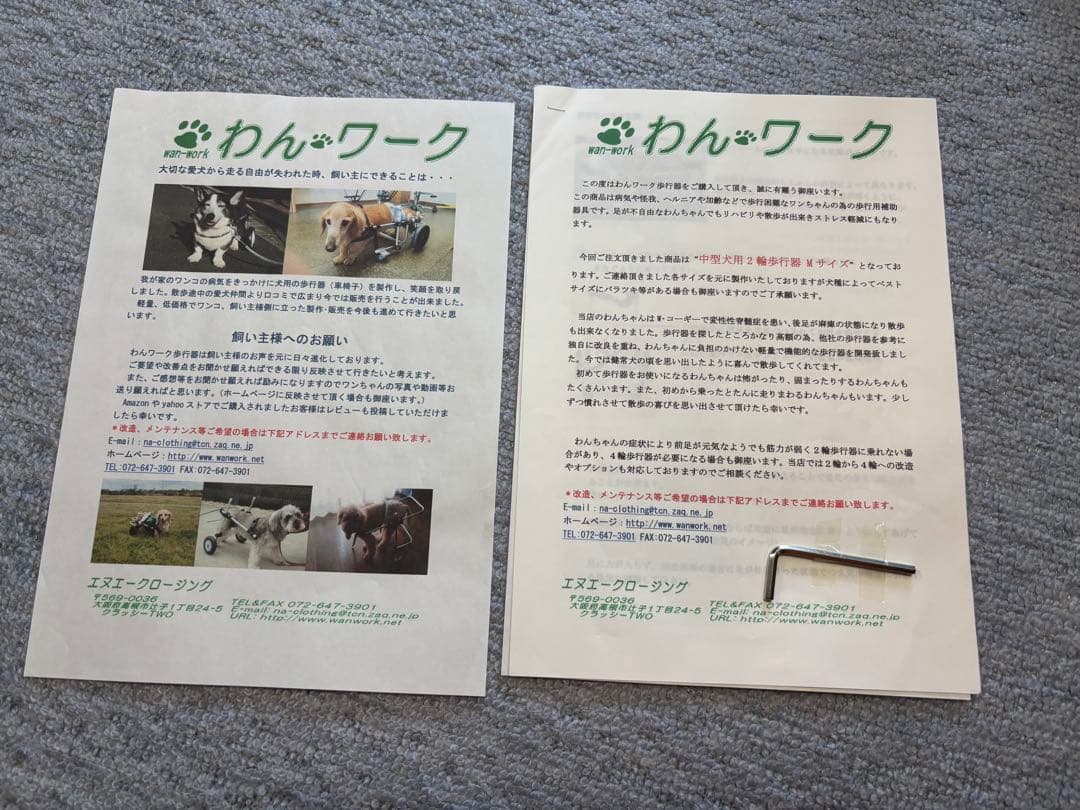 wan-work わん ワーク
大切な愛犬から走る自由が失われた時、飼い主にできることは・・・
我が家のワンコの病気をきっかけに犬用の歩行器（車椅子）を製作し、笑顔を取り戻
しました。散歩途中の愛犬仲間より口コミで広まり今では販売を行うことが出来ました。
軽量、低価格でワンコ、飼い主様側に立った製作・販売を今後も進めて行きたいと思
います。
飼い主様へのお願い
わんワーク歩行器は飼い主様のお声を元に日々進化しております。
ご要望や改善点をお聞かせ願えればできる限り反映させて行きたいと考えます。
また、ご感想等をお聞かせ願えれば励みになりますのでワンちゃんの写真や動画等お
送り願えればと思います。（ホームページに反映させて頂く場合も御座います。）
Amazonやyahooストアでご購入されましたお客様はレビューも投稿していただけま
したら幸いです。
＊改造、メンテナンス等ご希望の場合は下記アドレスまでご連絡お願い致します。
E-mail：na-clothing@tcn.zaq.ne.jp
ホームページ：http://www.wanwork.net
TEL:072-647-3901 FAX:072-647-3901
エヌエークロージング
〒569-0036
大阪府高槻市辻子1丁目24-5
クラッシーTWO
TEL&FAX 072-647-3901
E-mail: na-clothing@tcn.zaq.ne.jp
URL: http://www.wanwork.net
wan-work わん ワーク
この度はわんワーク歩行器をご購入して頂き、誠に有難う御座います。
この商品は病気や怪我、ヘルニアや加齢などで歩行困難なワンちゃんの為の歩行用補助
器具です。足が不自由なわんちゃんでもリハビリや散歩が出来きストレス軽減にもなり
ます。
今回ご注文頂きました商品は“中型犬用２輪歩行器 Mサイズ”となってお
ります。ご連絡頂きました各サイズを元に製作いたしておりますが犬種によってベスト
サイズにバラツキ等がある場合も御座いますのでご了承願います。
当店のわんちゃんはW・コーギーで変性性脊髄症を患い、後足が麻痺の状態になり散歩
も出来なくなりました。歩行器を探したところかなり高額の為、他社の歩行器を参考に
独自に改良を重ね、わんちゃんに負担のかけない軽量で機能的な歩行器を開発致しまし
た。今では健常犬の頃を思い出したように喜んで散歩してくれてます。
初めて歩行器をお使いになるわんちゃんは怖がったり、固まったりするわんちゃんも
たくさんいます。また、初めから乗ったとたんに走りまわるわんちゃんもいます。少し
ずつ慣れさせて散歩の喜びを思い出させて頂けたら幸いです。
わんちゃんの症状により前足が元気なようでも筋力が弱く２輪歩行器に乗れない場
合があり、４輪歩行器が必要になる場合も御座います。当店では２輪から４輪への改造
やオプションも対応しておりますのでご相談ください。
＊改造、メンテナンス等ご希望の場合は下記アドレスまでご連絡お願い致します。
E-mail：na-clothing@tcn.zaq.ne.jp
ホームページ：http://www.wanwork.net
TEL:072-647-3901 FAX:072-647-3901
エヌエークロージング
〒569-0036
大阪府高槻市辻子1丁目24-5
クラッシーTWO
TEL&FAX 072-647-3901
E-mail: na-clothing@tcn.zaq.ne.jp
URL: http://www.wanwork.net